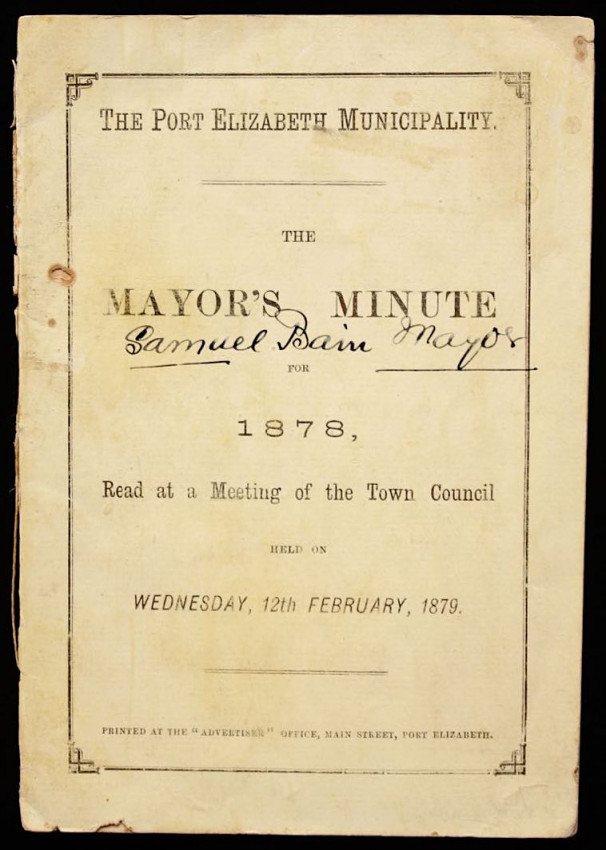 THE PORT ELIZABETH MUNICIPALITY.
THE
MAYOR'S MINUTE
Samuel Bain Mayor
FOR
1878,
Read at a Meeting of the Town Council
HELD ON
WEDNESDAY, 12th FEBRUARY, 1879.
PRINTED AT THE "ADVERTISER" OFFICE, MAIN STREET, PORT ELIZABETH.